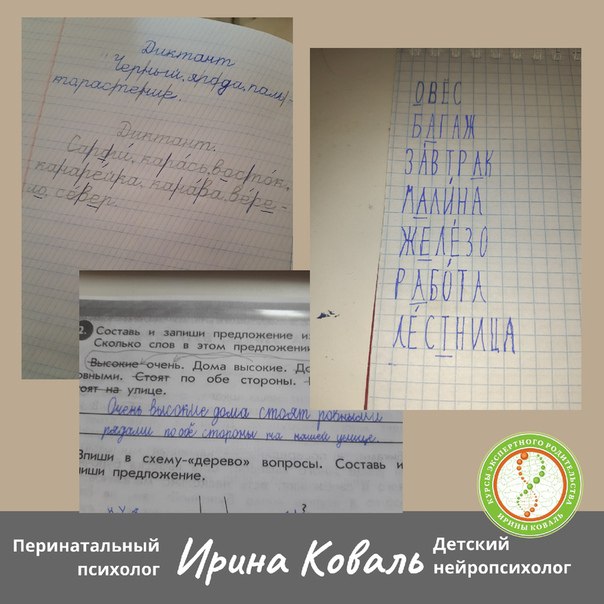 Диктант
Черный, ягоди, пальто
растение.
Диктант.
Сарай, карась, восток,
канарейка, канава, вере-
ло, север.
ОВЁС
БАГАЖ
ЗАВТРАК
МАЛИНА
ЖЕЛЕЗО
РАБОТА
ЛЕСТНИЦА
Составь и запиши предложение из
Сколько слов в этом предложении
Высокие очень. Дома высокие. До
овными. Стоят по обе стороны.
оят на улице.
Очень высокие дома стоят ровными
рядами по обе стороны на нашей улице.
Впиши в схему-«дерево» вопросы. Составь и
пиши предложение.
КУРСЫ ЭКСПЕРТНОГО РОДИТЕЛЬСТВА
ИРИНЫ КОВАЛЬ
Перинатальный
психолог
Ирина Коваль
Детский
нейропсихолог